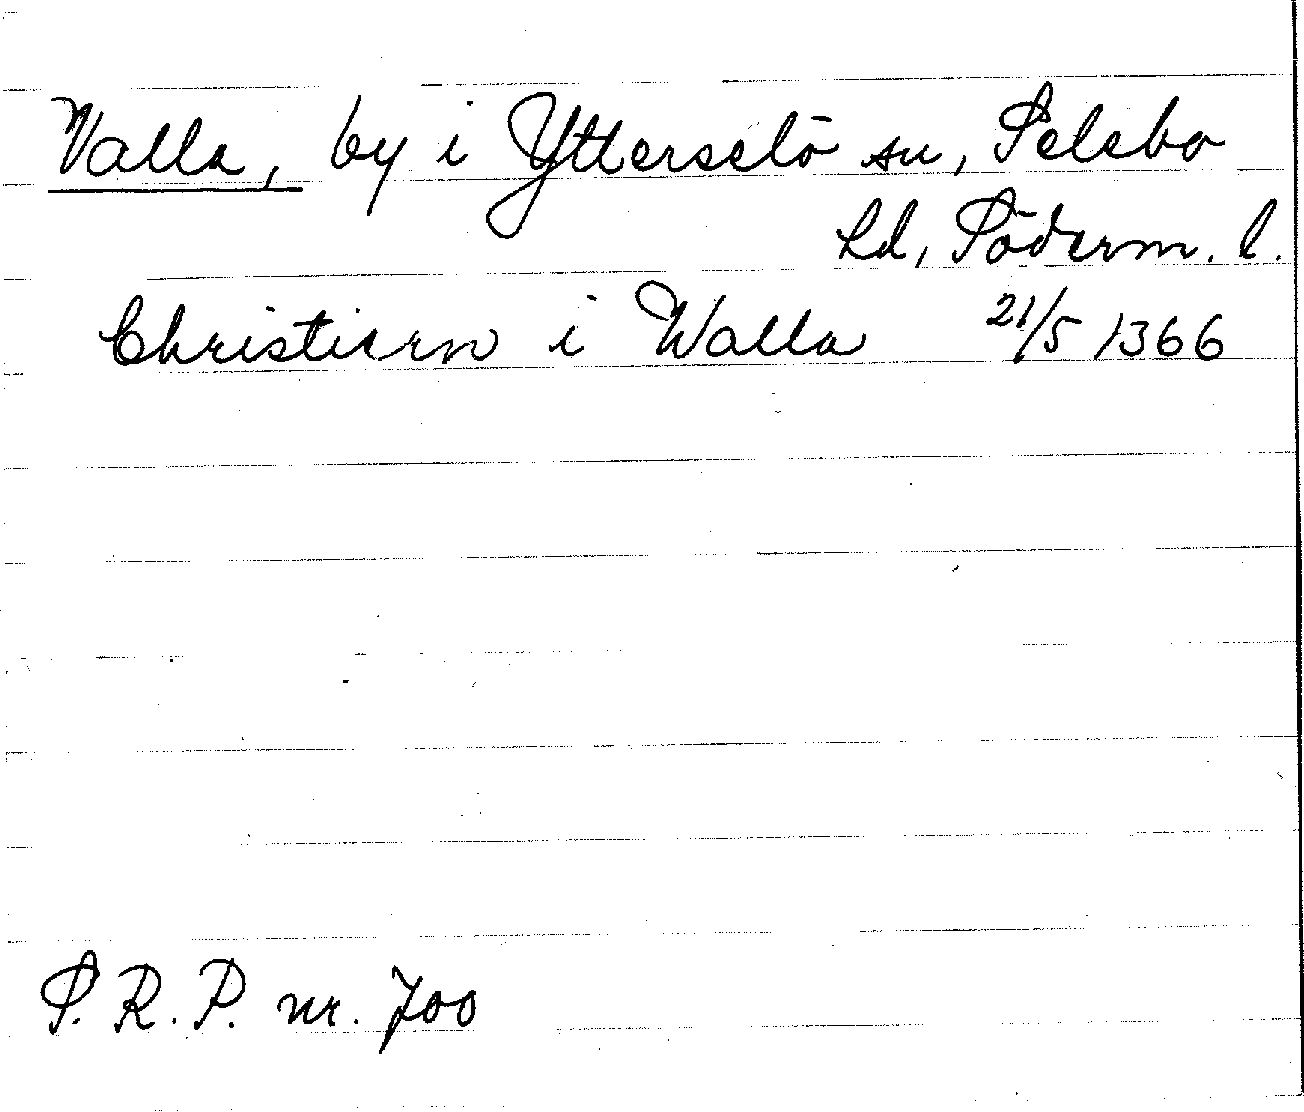 Valla, by i Ytterselö sn, Selebo
hd, Söderm. l.
Christiern i Walla 21/5 1366
S.R.P. nr. 700